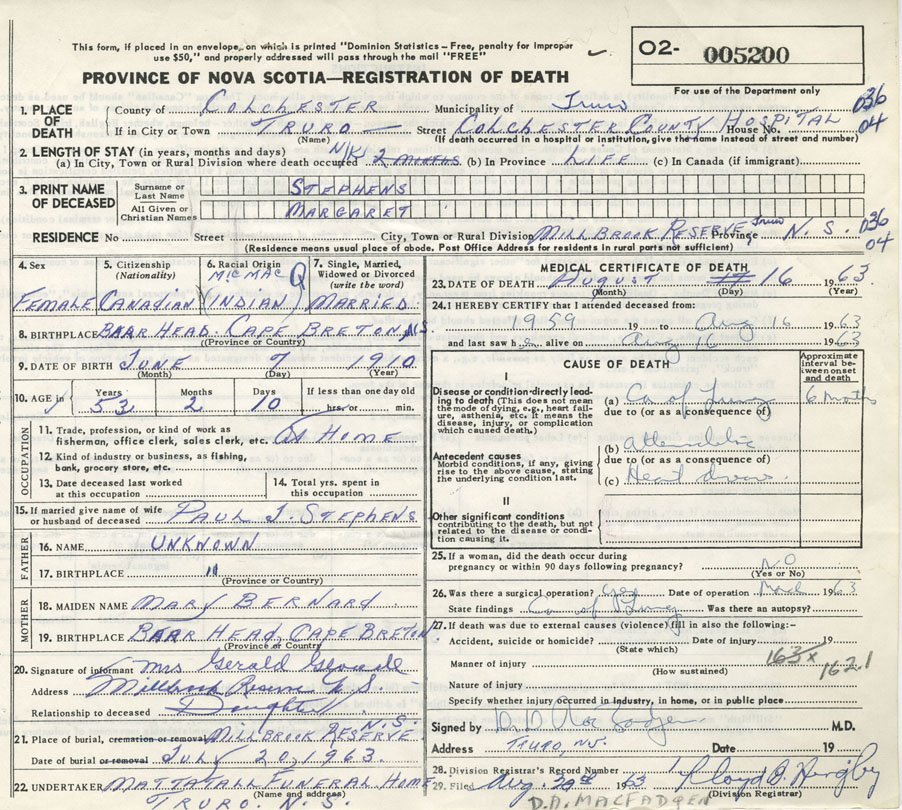 This form, if placed in an envelope, on which is printed "Dominion Statistics – Free, penalty for improper
use $50," and properly addressed will pass through the mail "FREE"
O2- 005200
For use of the Department only
PROVINCE OF NOVA SCOTIA—REGISTRATION OF DEATH
1. PLACE OF DEATH County of COLCHESTER Municipality of Truro 036
If in City or Town TRURO Street COLCHESTER COUNTY HOSPITAL House No. 04
(Name) (If death occurred in a hospital or institution, give the name instead of street and number)
2. LENGTH OF STAY (in years, months and days)
(a) In City, Town or Rural Division where death occurred N/K 2 WEEKS (b) In Province LIFE (c) In Canada (if immigrant)
3. PRINT NAME OF DECEASED Surname or Last Name STEPHENS
All Given or Christian Names MARGARET
RESIDENCE No Street City, Town or Rural Division MILLBROOK RESERVE, Truro Province N. S. 036 04
(Residence means usual place of abode. Post Office Address for residents in rural parts not sufficient)
4. Sex FEMALE
5. Citizenship (Nationality) CANADIAN
6. Racial Origin MICMAC (INDIAN)
7. Single, Married, Widowed or Divorced (write the word) MARRIED
8. BIRTHPLACE BARR HEAD. CAPE BRETON, N.S.
(Province or Country)
9. DATE OF BIRTH JUNE 7 1910
(Month) (Day) (Year)
10. AGE in Years 53 Months 2 Days 10 If less than one day old hrs. or min.
OCCUPATION
11. Trade, profession, or kind of work as fisherman, office clerk, sales clerk, etc. At HOME
12. Kind of industry or business, as fishing, bank, grocery store, etc.
13. Date deceased last worked at this occupation
14. Total yrs. spent in this occupation
15. If married give name of wife or husband of deceased PAUL J. STEPHENS
FATHER
16. NAME UNKNOWN
17. BIRTHPLACE "
(Province or Country)
MOTHER
18. MAIDEN NAME MARY BERNARD
19. BIRTHPLACE BARR HEAD, CAPE BRETON
(Province or Country)
20. Signature of informant Mrs Gerald Gloade
Address Millbrook Reserve N. S.
Relationship to deceased Daughter
21. Place of burial, cremation or removal MILLBROOK RESERVE N.S.
Date of burial or removal JULY 20, 1963
22. UNDERTAKER MATTATALL FUNERAL HOME
(Name and address)
TRURO. N. S.
MEDICAL CERTIFICATE OF DEATH
23. DATE OF DEATH AUGUST 17 16 1963
(Month) (Day) (Year)
24. I HEREBY CERTIFY that I attended deceased from:
1959 19 to Aug 16 1963
and last saw h alive on Aug 16 1963
CAUSE OF DEATH
Approximate interval between onset and death
I
Disease or condition directly leading to death (This does not mean the mode of dying, e.g., heart failure, asthenia, etc. It means the disease, injury, or complication which caused death.)
(a) Ca of Lung 6 months
due to (or as a consequence of)
Antecedent causes
Morbid conditions, if any, giving rise to the above cause, stating the underlying condition last.
(b)
due to (or as a consequence of)
(c) Heart
II
Other significant conditions
contributing to the death, but not related to the disease or condition causing it.
25. If a woman, did the death occur during
pregnancy or within 90 days following pregnancy? NO
(Yes or No)
26. Was there a surgical operation? yes Date of operation 1963
State findings Ca of Lung Was there an autopsy?
27. If death was due to external causes (violence) fill in also the following:-
Accident, suicide or homicide? Date of injury 19
(State which)
Manner of injury 163x 162.1
(How sustained)
Nature of injury
Specify whether injury occurred in industry, in home, or in public place
Signed by D. D. MacFadgen M.D.
Address TRURO, N.S. Date 19
28. Division Registrar's Record Number
29. Filed Aug. 1963
(Division Registrar)
D.D. MACFADGEN